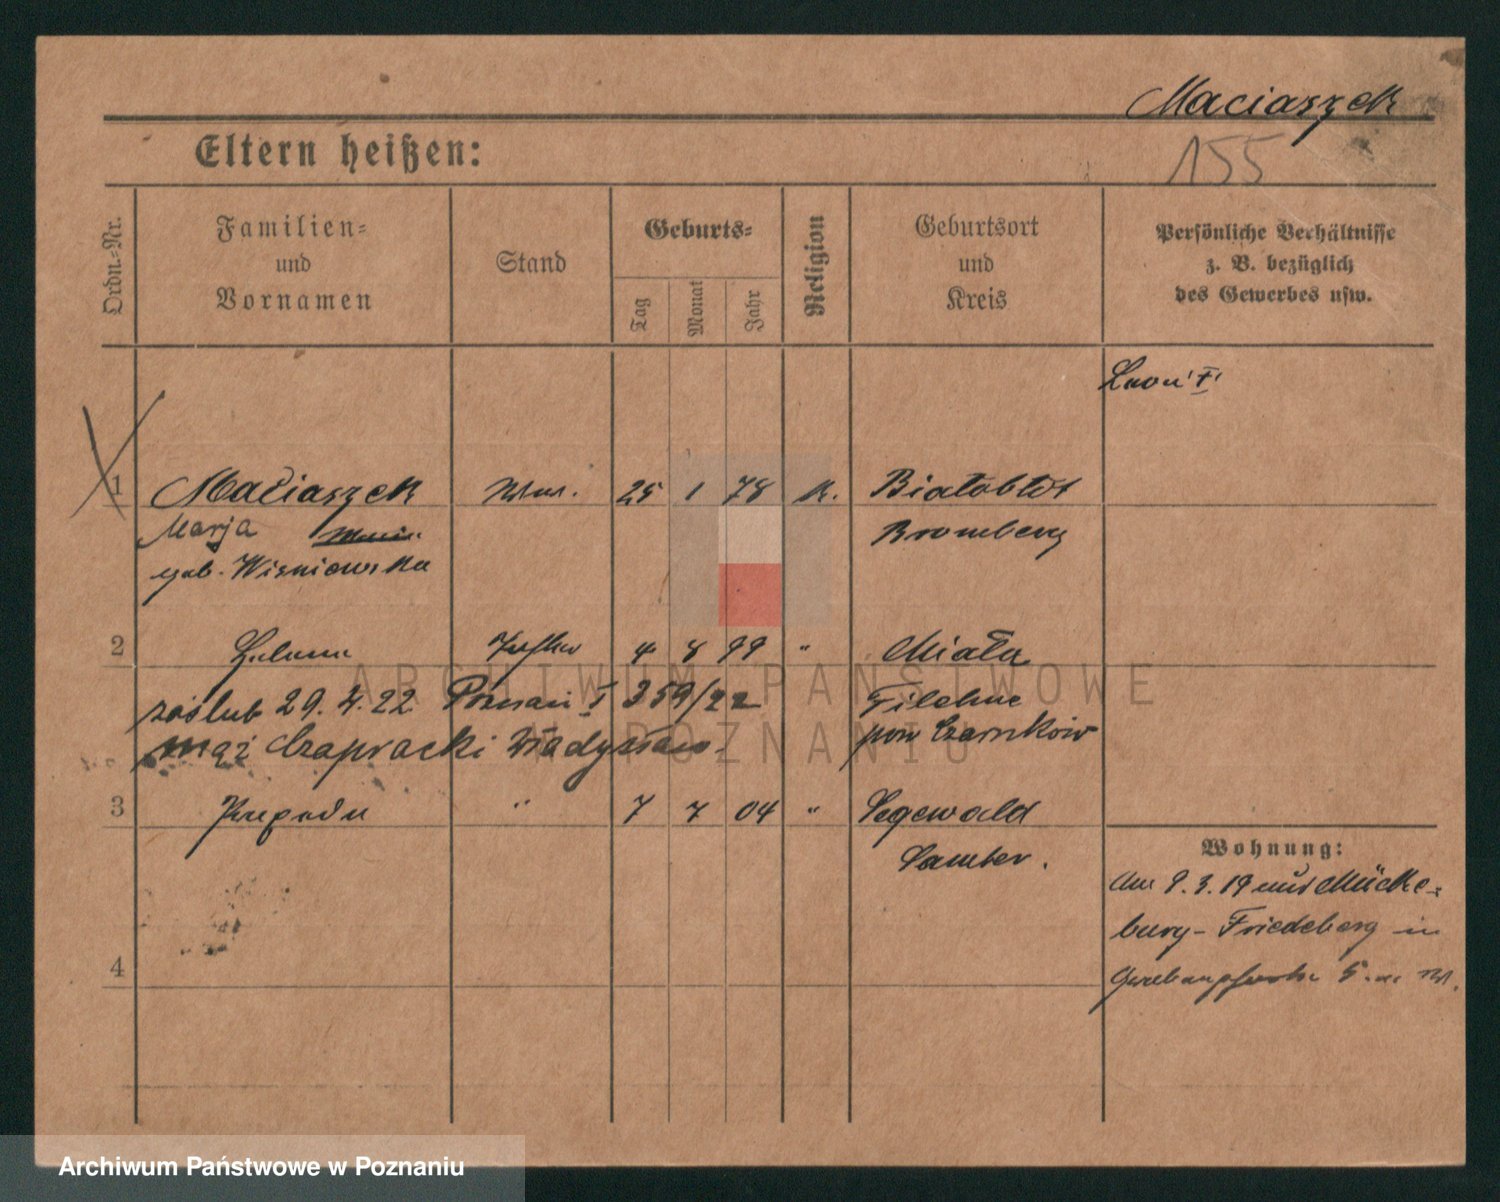 Maciaszek
155
Eltern heißen:
Ordn.-Nr.
Familien-
und
Vornamen
Stand
Geburts-
Tag
Monat
Jahr
Religion
Geburtsort
und
Kreis
Persönliche Verhältnisse
z. B. bezüglich
des Gewerbes usw.
1 Maciaszek Ww. 25 1 78 K. Białobłot
Marja Bromberg
geb. Wisniewska
2 Helena 4 8 99 " Miała
zaślub 29. 4. 22 Poznań I 359/22 Filehne
mąż Czapracki Władysław. pow Czarnków
3 " 7 7 04 " Segewald
Samter.
Wohnung:
Am 9. 3. 19 aus Mücke-
burg-Friedeberg in
5.
4
ARCHIWUM PAŃSTWOWE
W POZNANIU
Archiwum Państwowe w Poznaniu